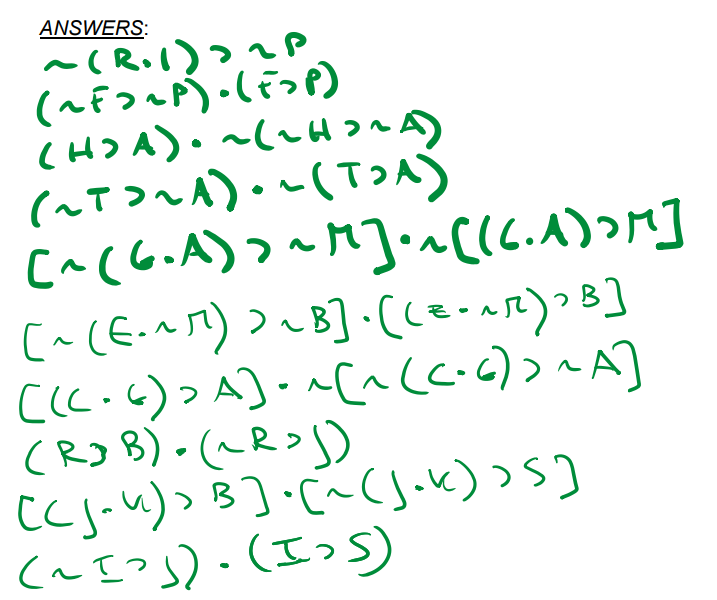 ANSWERS:
~(R·I)⊃~P
(~F⊃~P)·(F⊃P)
(H⊃A)·~(~H⊃~A)
(~T⊃~A)·~(T⊃A)
[~(G·A)⊃~M]·~[(G·A)⊃M]
[~(E·~M)⊃~B]·[(E·~M)⊃B]
[(C·G)⊃A]·~[~(C·G)⊃~A]
(R⊃B)·(~R⊃J)
[(J·K)⊃B]·[~(J·K)⊃S]
(~I⊃J)·(I⊃S)